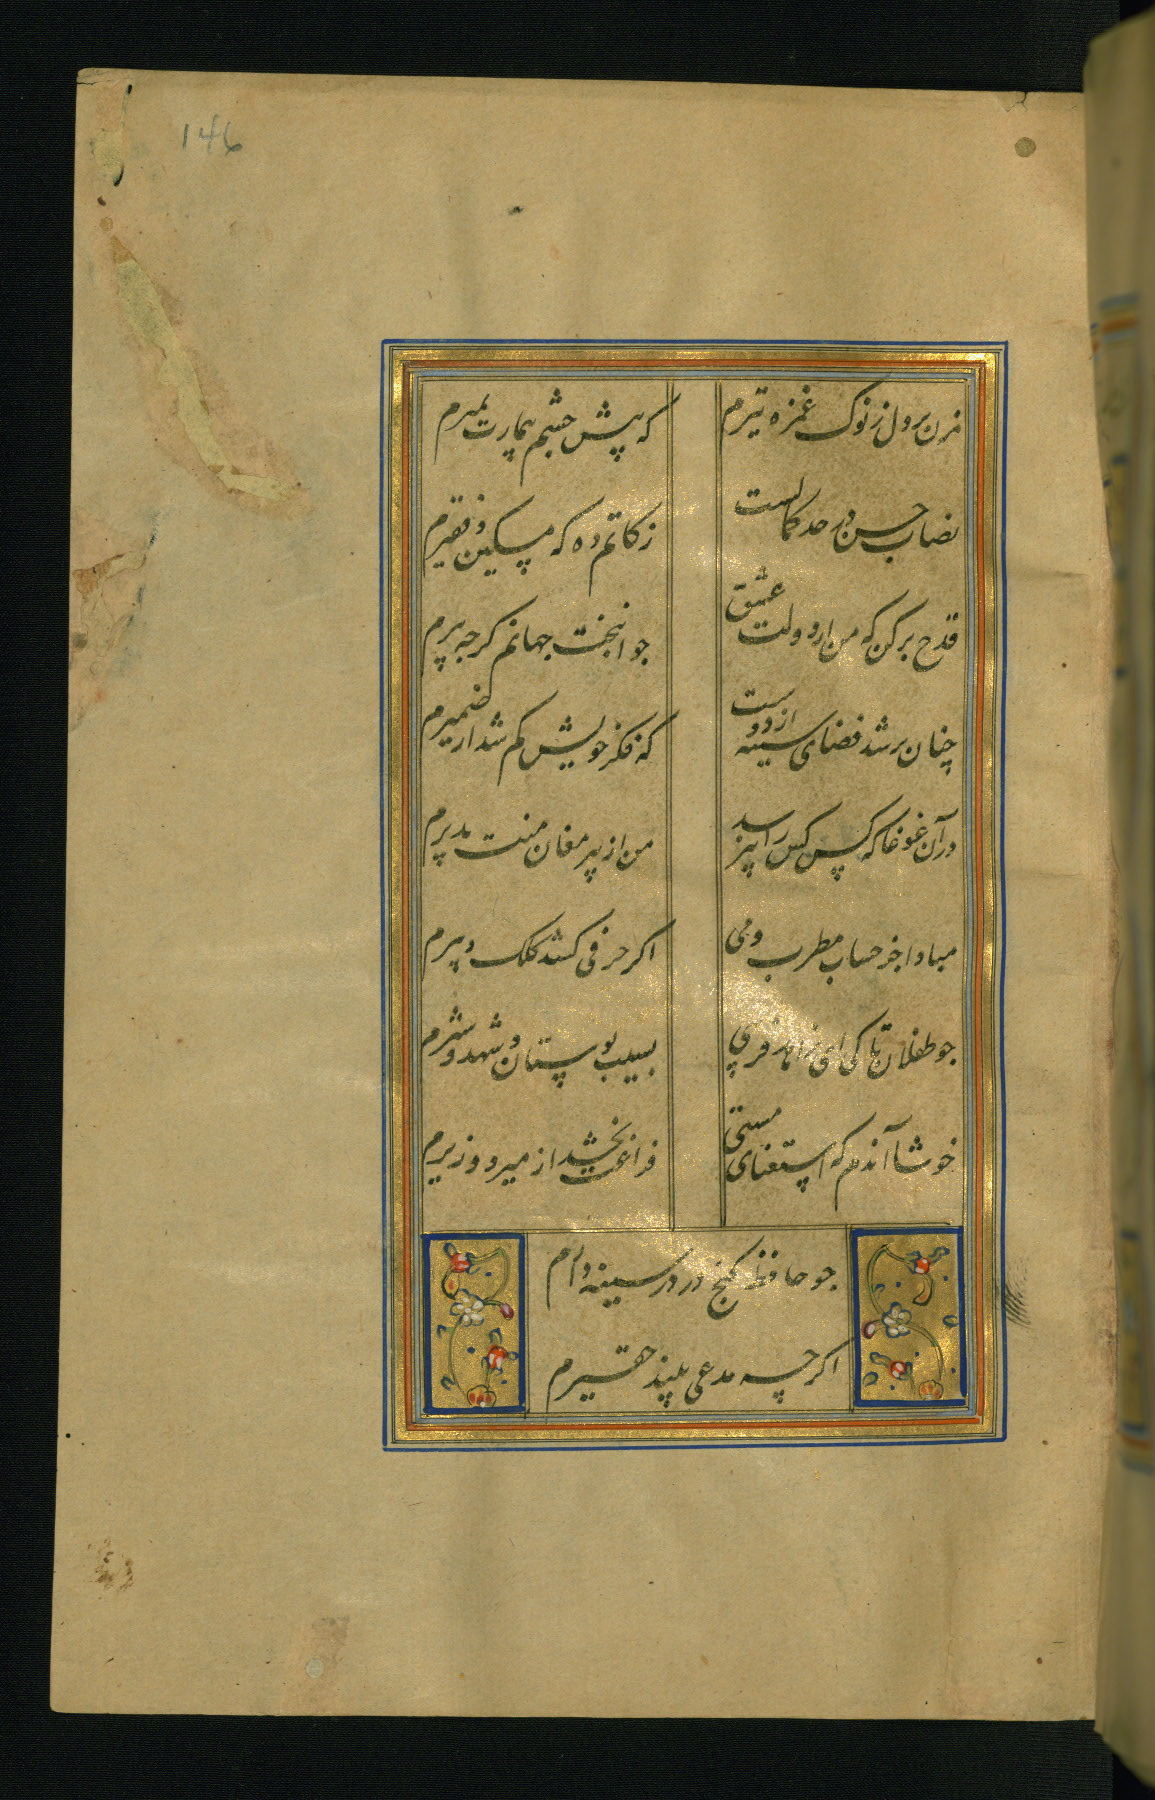 146
مزن بر دل ز نوک غمزه تیرم
که پیش چشم بیمارت بمیرم
نصاب حسن در حد کمالست
زکاتم ده که مسکین و فقیرم
قدح پر کن که من از دولت عشق
جوانبخت جهانم کرچه پیرم
چنان پر شد فضای سینه از دوست
که فکر خویش کم شد از ضمیرم
در آن غوغا که کس کس را نپرسد
من از پیر مغان منت پذیرم
مبادا جز حساب مطرب و می
اکر حرفی کشد کلک دبیرم
چو طفلان تا کی ای زاهد فریبی
بسیب بوستان و شهد و شیرم
خوشا آندم که استغنای مستی
فراغت بخشد از میر و وزیرم
چو حافظ کنج در در سینه دارم
اکرچه مدعی بیند حقیرم